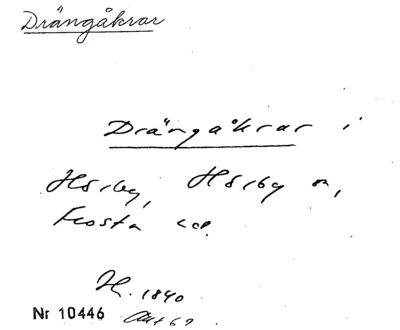 Drängåkrar
Drängåkrar i
Hörby, Hörby sn,
Frosta hd.
H. 1840
Nr 10446 Akt 62